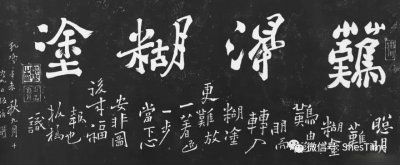 難得糊塗
聰明
難糊塗
難由聰
明而
轉入
糊塗
更難放
一着退
一步
當下心
安非圖
後來福
報也
板橋
識
乾隆辛未秋九月十
微信号